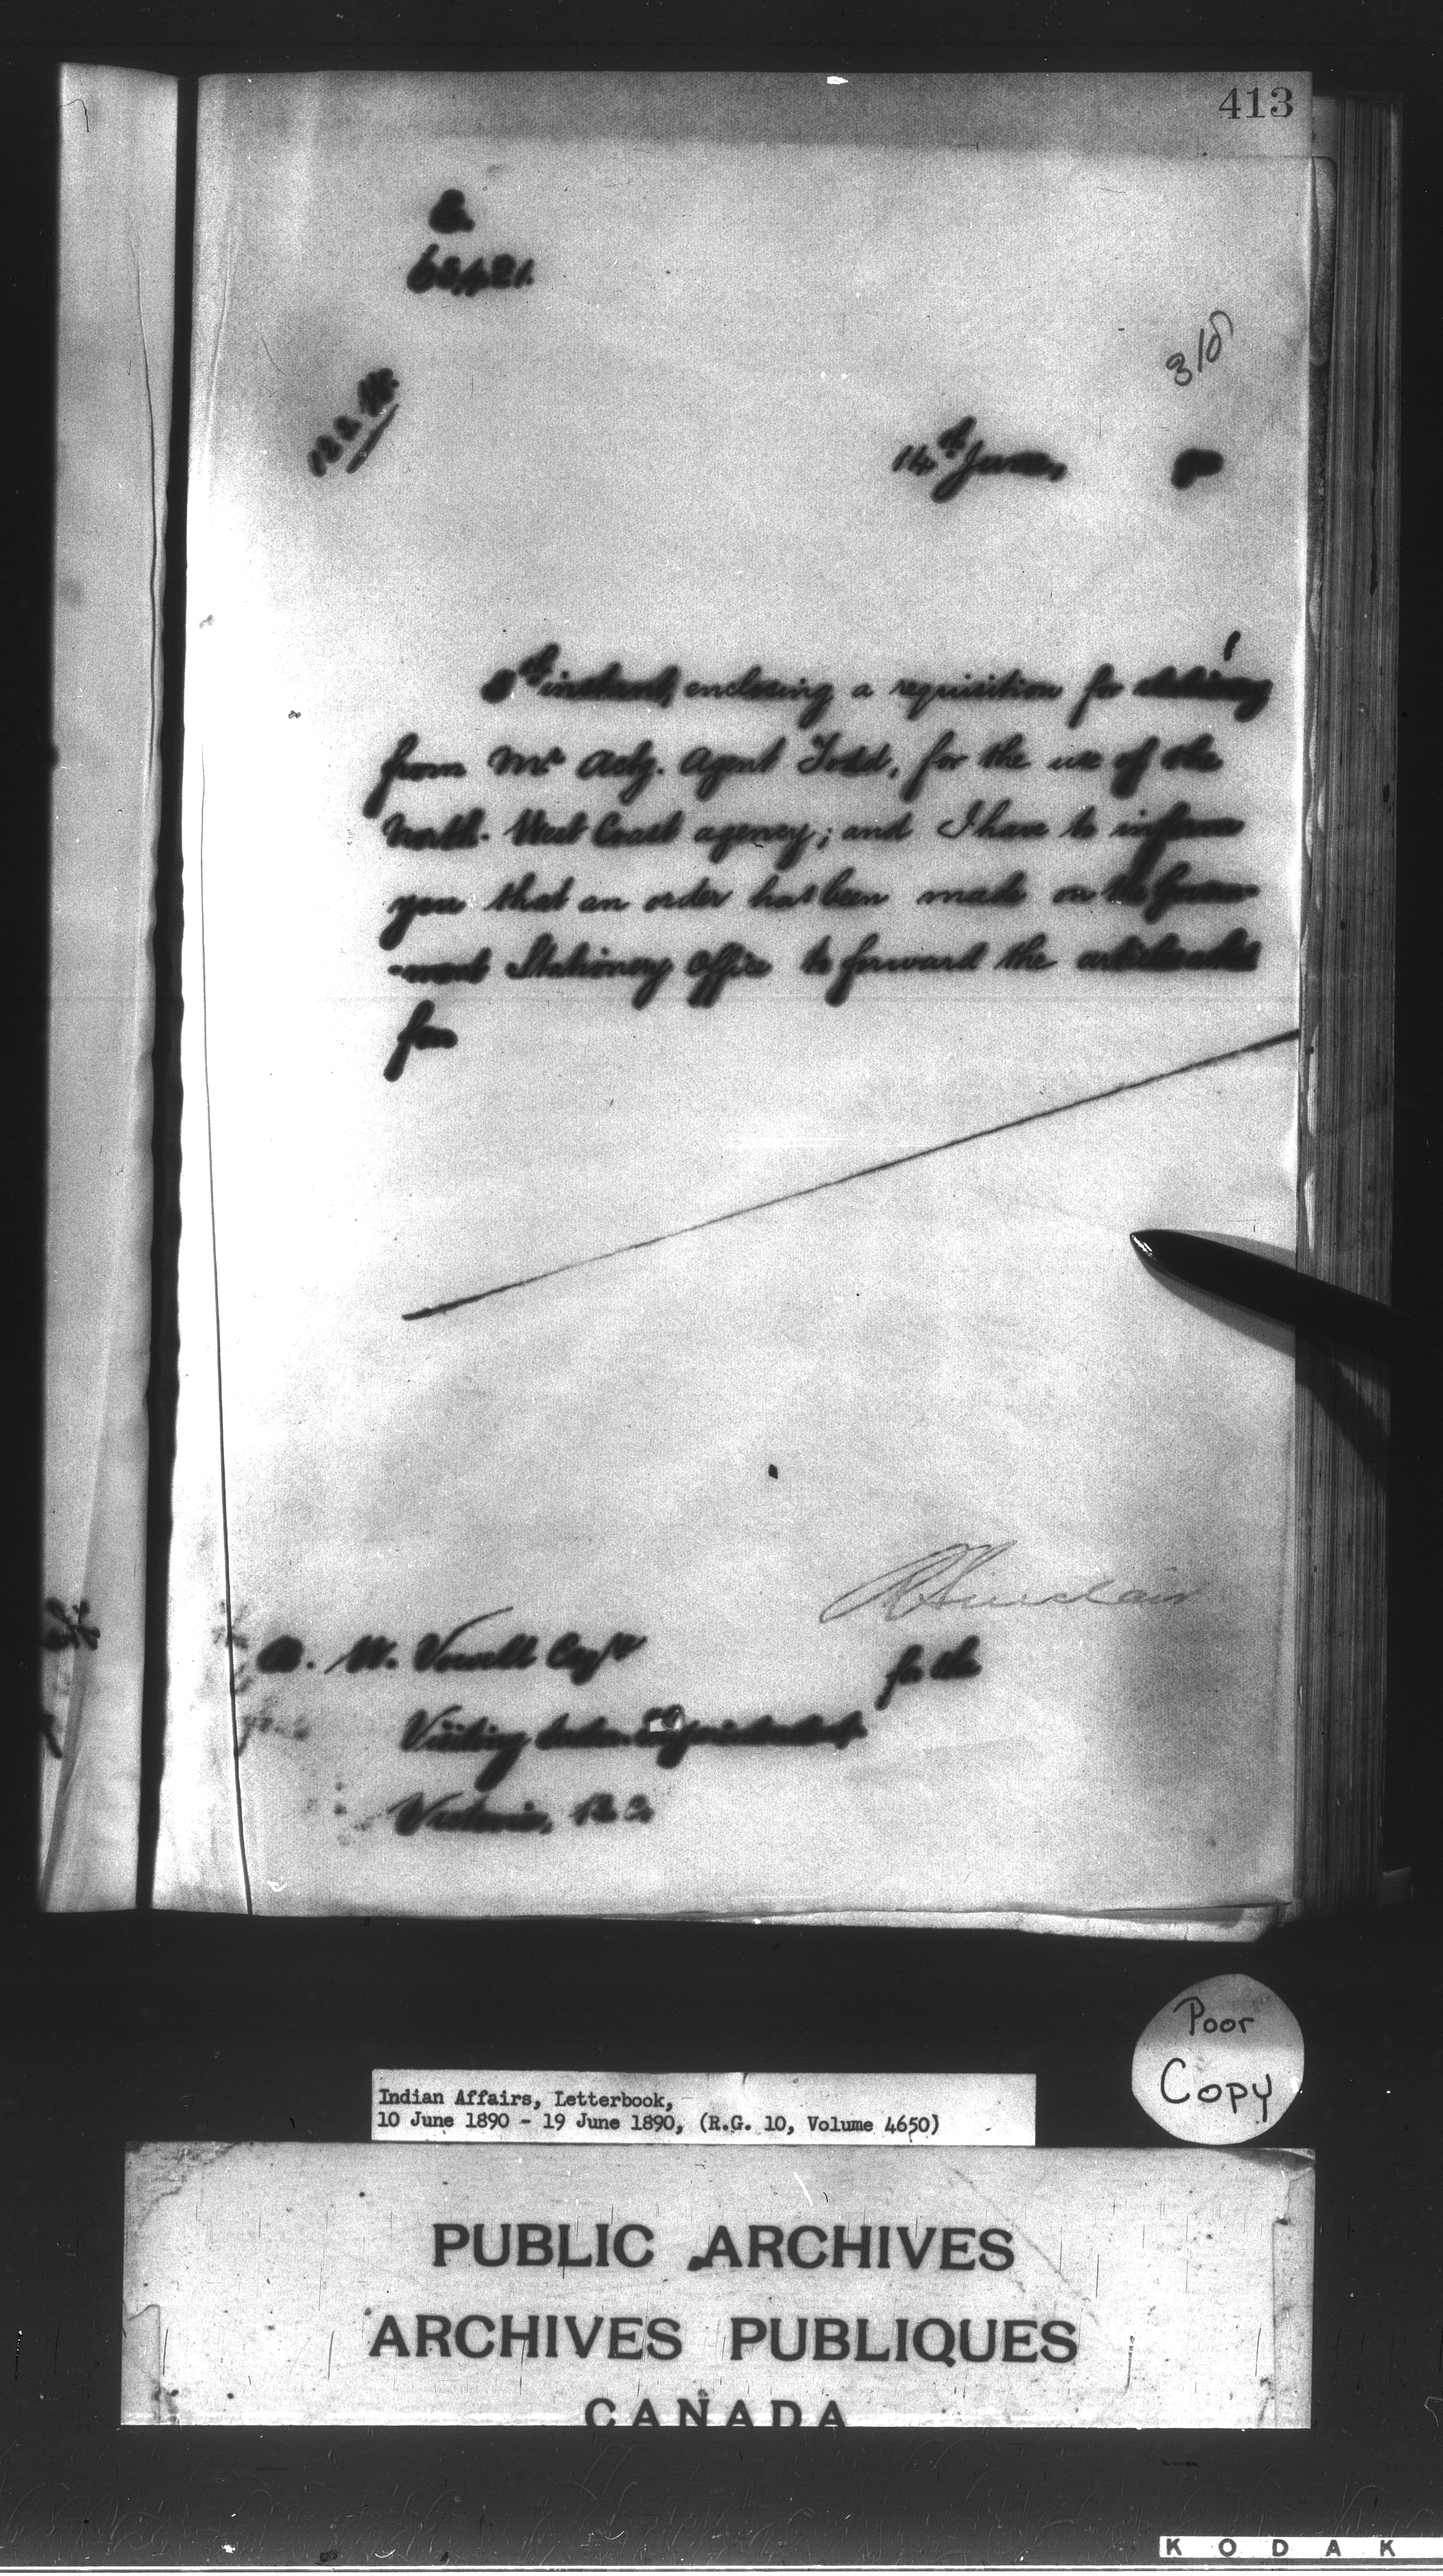 413
E.
318
14th June,
5th instant, enclosing a requisition for
from Mr. Actg. Agent Todd, for the use of the
North-West Coast agency; and I have to inform
you that an order has been made on the Govern
-ment Stationery Office to forward the articles asked
for
R Sinclair
A. W. Vowell Esqre
for the
Visiting Indian Superintendent,
Victoria, B.C.
Poor
Copy
Indian Affairs, Letterbook,
10 June 1890 - 19 June 1890, (R.G. 10, Volume 4650)
PUBLIC ARCHIVES
ARCHIVES PUBLIQUES
CANADA
KODAK